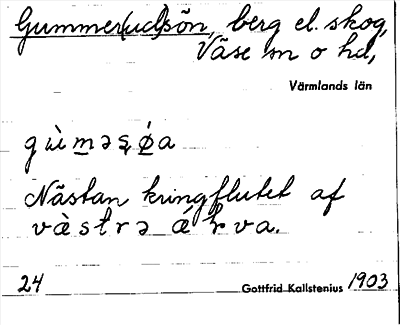 Gummer(ud)sön, berg el. skog,
Väse sn o hd,
Värmlands län
gù̀məsǿa
Nästan kringflutet af
vàstrə álva.
24 Gottfrid Kallstenius 1903